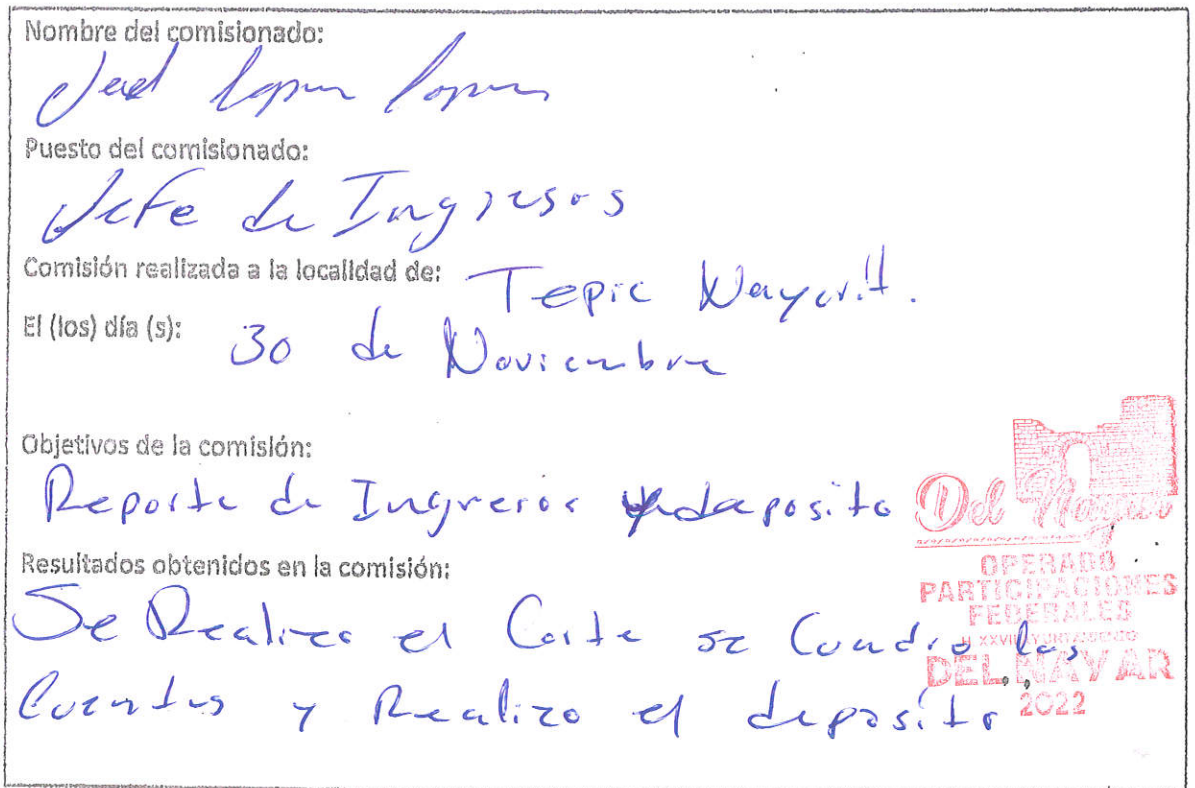 Nombre del comisionado:
Lopez Lopez
Puesto del comisionado:
Jefe de Ingresos
Comisión realizada a la localidad de: Tepic Nayarit.
El (los) día (s): 30 de Noviembre
Objetivos de la comisión:
Reporte de Ingresos deposito
Resultados obtenidos en la comisión:
Se Realizo el Corte se Cuadro las
Cuentas y Realizo el deposito
Del Nayar
OPERADO
PARTICIPACIONES
FEDERALES
H XXVII AYUNTAMIENTO
DEL NAYAR
2022